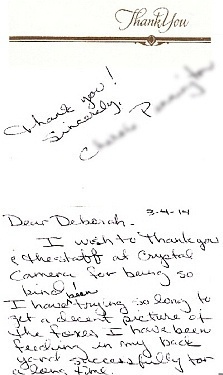 Thank You
Thank you!
Sincerely,
3-4-14
Dear Deborah -
I wish to thank you
& the staff at Crystal
Camera for being so
kind!
been
I have trying so long to
get a decent picture of
the foxes I have been
feeding in my back
yard successfully for
a long time.